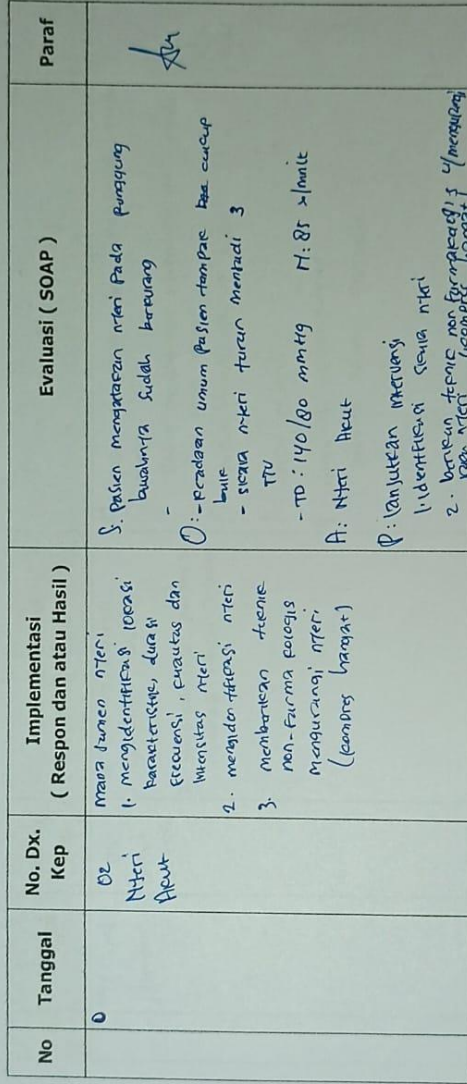 No
Tanggal
No. Dx.
Kep
Implementasi
( Respon dan atau Hasil )
Evaluasi ( SOAP )
Paraf
02
Nyeri
Akut
manajemen nyeri
1. mengidentifikasi lokasi
karakteristik, durasi
frekuensi, kualitas dan
intensitas nyeri
2. mengidentifikasi nyeri
3. memberikan teknik
non-farmakologis
mengurangi nyeri
(kompres hangat)
S: Pasien mengatakan nyeri pada punggung
bawahnya sudah berkurang
-
O: - keadaan umum pasien tampak cukup
baik
- skala nyeri turun menjadi 3
TTV
- TD: 140/80 mmHg N: 85 x/mnit
A: Nyeri Akut
P: Lanjutkan intervensi
1. identifikasi skala nyeri
2. berikan teknik non farmakologis u/mengurangi
nyeri (kompres hangat)